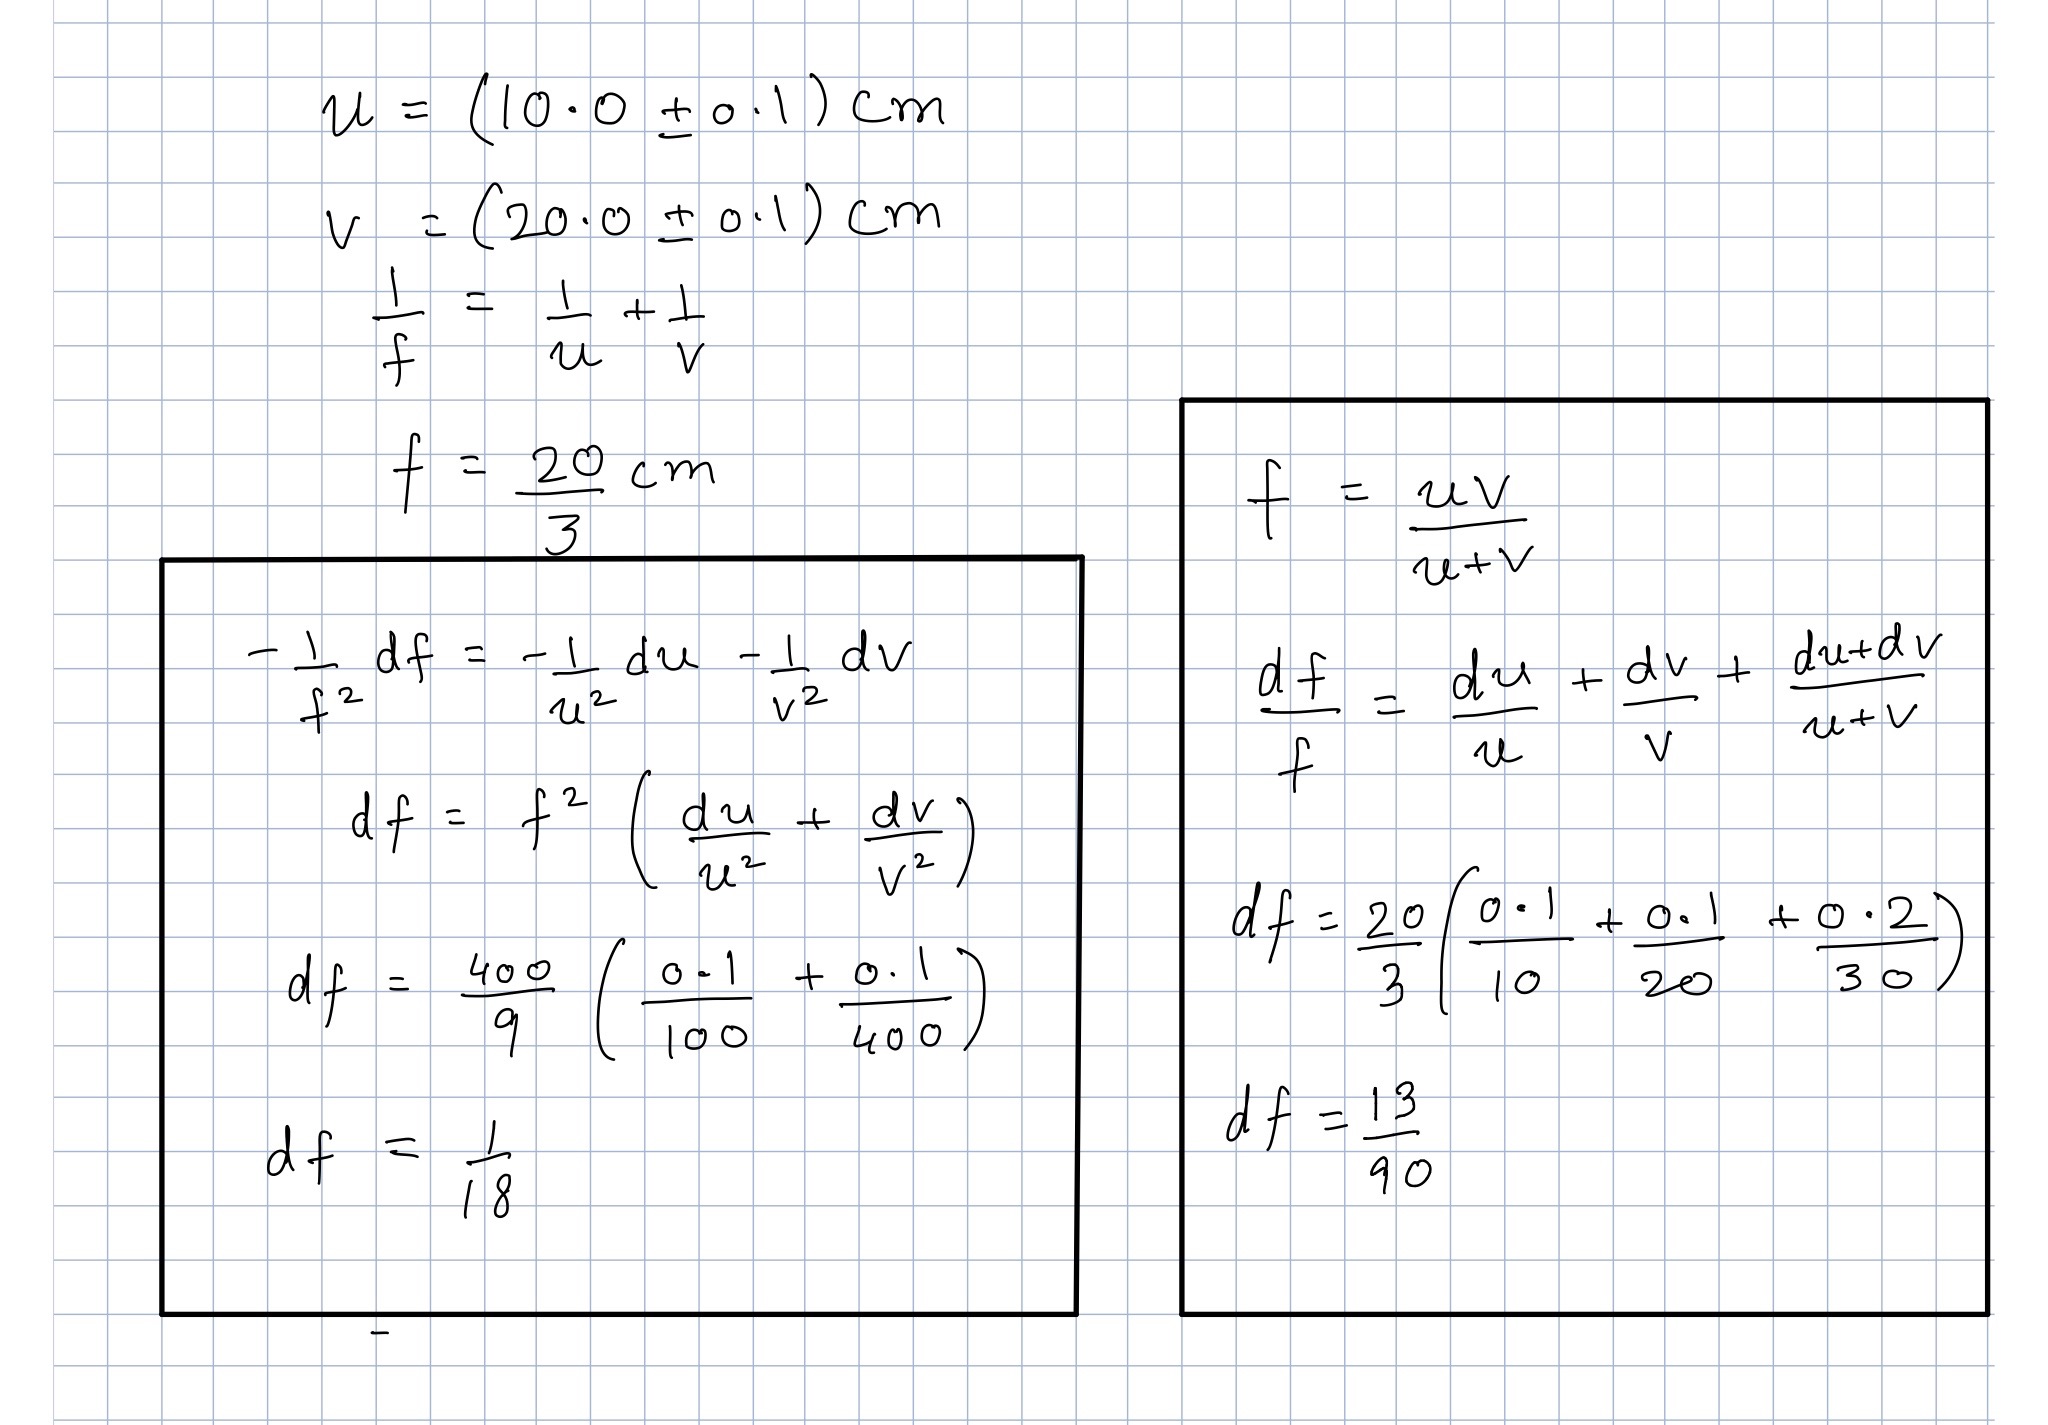 u = (10.0 ± 0.1) cm
v = (20.0 ± 0.1) cm
1/f = 1/u + 1/v
f = 20/3 cm
- 1/f² df = - 1/u² du - 1/v² dv
df = f² (du/u² + dv/v²)
df = 400/9 (0.1/100 + 0.1/400)
df = 1/18
-
f = uv/(u+v)
df/f = du/u + dv/v + (du+dv)/(u+v)
df = 20/3 (0.1/10 + 0.1/20 + 0.2/30)
df = 13/90